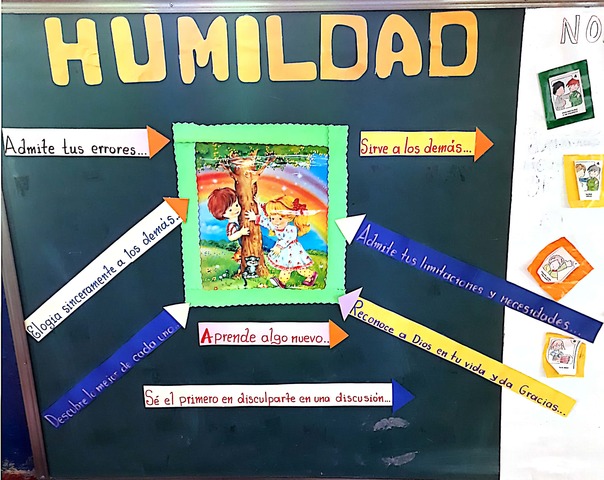 HUMILDAD
NO
Admite tus errores...
Sirve a los demás...
Elogia sinceramente a los demás...
Admite tus limitaciones y necesidades...
Descubre lo mejor de cada uno...
Aprende algo nuevo..
Reconoce a Dios en tu vida y da Gracias...
Sé el primero en disculparte en una discusión...